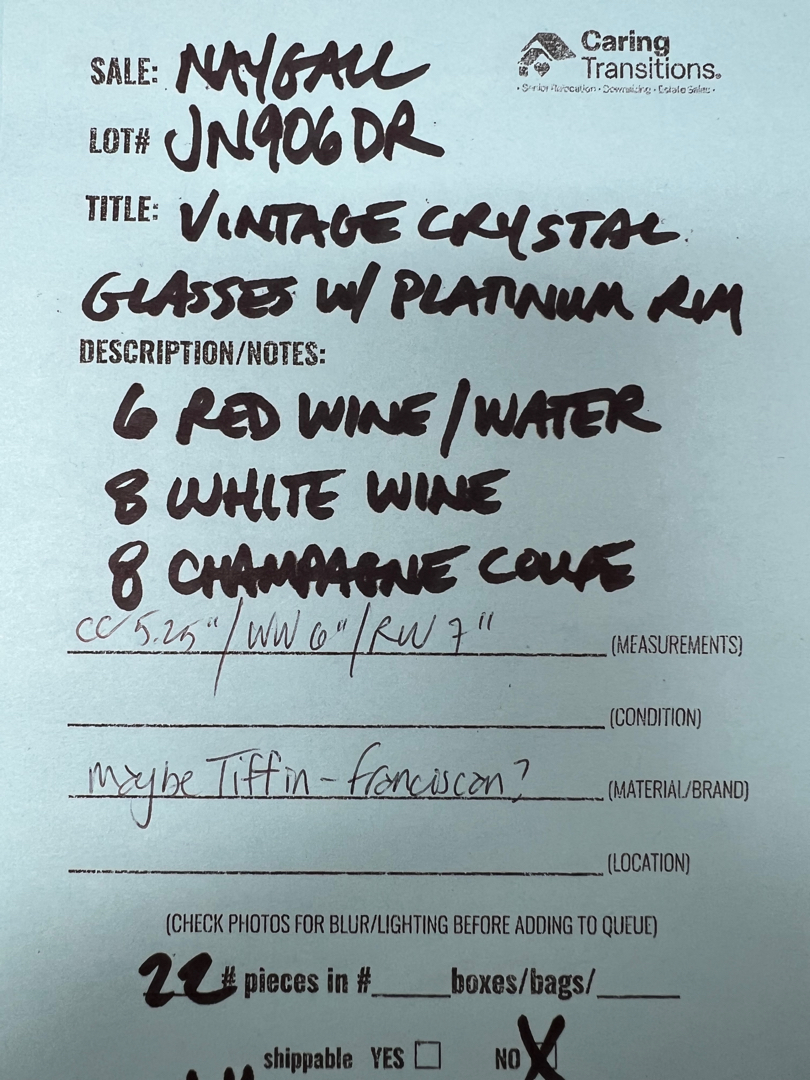 Caring
Transitions®
• Senior Relocation • Downsizing • Estate Sales •
SALE: NAYGALL
LOT# JN906DR
TITLE: VINTAGE CRYSTAL
GLASSES W/ PLATINUM RIM
DESCRIPTION/NOTES:
6 RED WINE/WATER
8 WHITE WINE
8 CHAMPAGNE COUPE
CC 5.25"/WW 6"/RW 7" (MEASUREMENTS)
(CONDITION)
maybe Tiffin - franciscan? (MATERIAL/BRAND)
(LOCATION)
(CHECK PHOTOS FOR BLUR/LIGHTING BEFORE ADDING TO QUEUE)
22 # pieces in #____ boxes/bags/____
shippable YES ☐ NO X